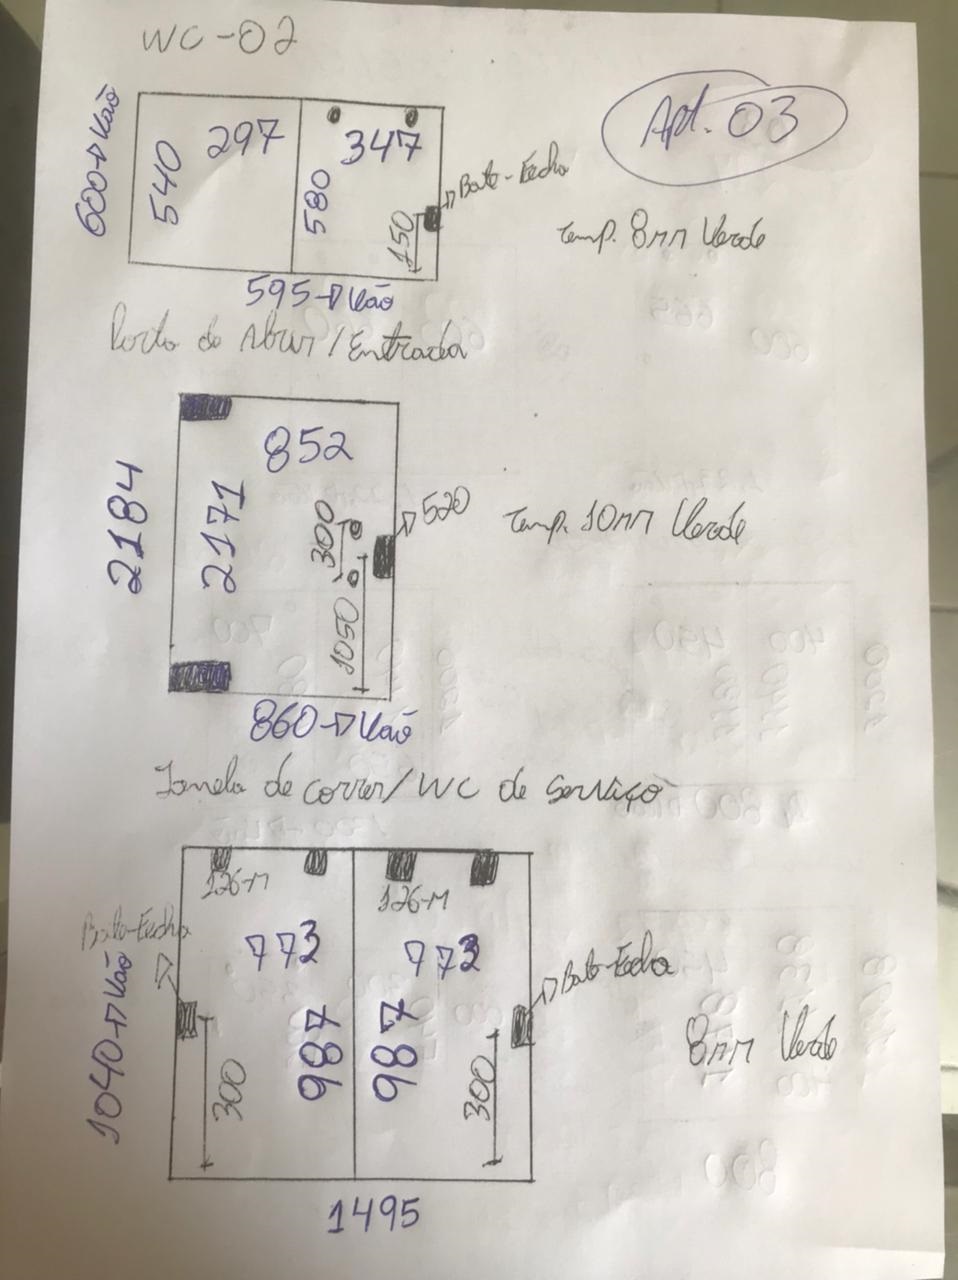 WC-02
Apt. 03
600→Vão
540
297
580
347
150
Bate-Fecha
Temp. 8mm Verde
595→Vão
Porta de Abrir/Entrada
2184
2171
852
300
1050
520
Temp. 10mm Verde
860→Vão
Janela de correr/WC de Serviço
126-M
126-M
Bate-Fecha
1040→Vão
773
773
987
987
300
300
Bate-Fecha
8mm Verde
1495